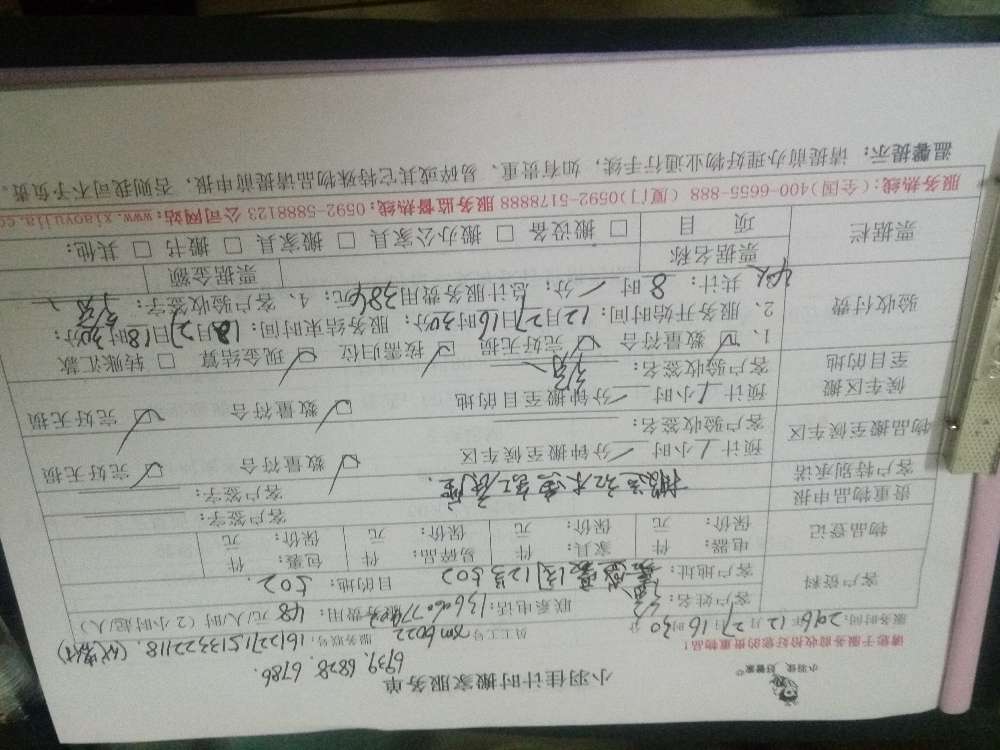 小羽佳 好管家
小羽佳计时搬家服务单
6939. 6828. 6786.
请您于服务前收拾好您的贵重物品！
员工工号：xm6022 服务账号：161227151332118.
服务时间：2016年12月27日16时30分
服务费用：48元/人/时（2小时起/人）
客户资料
客户姓名： 联系电话：
客户地址： 123号502 目的地：502.
物品登记
电器： 件 家具： 件 易碎品： 件 包裹： 件
保价： 元 保价： 元 保价： 元 保价： 元
贵重物品申报 客户签字：
客户特别承诺 搬运红木 客户签字：
物品搬至候车区
预计 1 小时 / 分钟搬至候车区 数量符合 完好无损
客户验收签名：
候车区搬至目的地
预计 1 小时 / 分钟搬至目的地 数量符合 完好无损
客户验收签名：
验收付费
1、数量符合 完好无损 按需归位 现金结算 转账汇款
2、服务开始时间：12月27日16时30分； 服务结束时间：12月27日18时30分；
共计：8时 / 分； 总计服务费用384元； 4、客户验收签字：
票据栏
票据名称 票据金额
项目 搬设备 搬办公家具 搬家具 搬书 其他：
服务热线：（全国）400-6655-888 （厦门）0592-5178888 服务监督热线：0592-5888123 公司网站：www.xiaoyujia.co
温馨提示：请提前办理好物业通行手续，如有贵重、易碎或其它特殊物品请提前申报，否则我司不予负责。